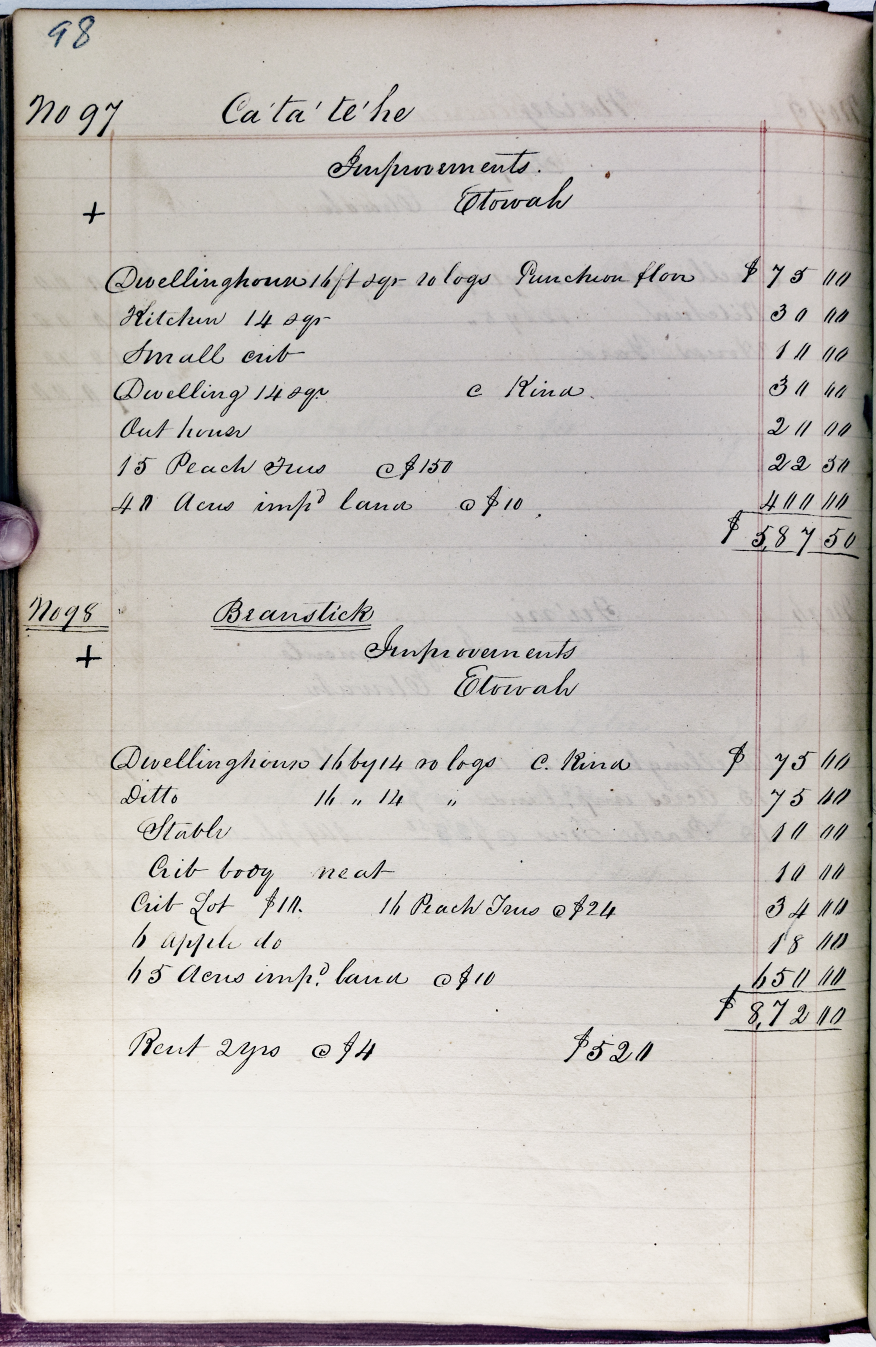 98
No 97 Ca'ta'te'he
Improvements.
+ Etowah
Dwellinghouse 16ft sqr ro logs Puncheon floor $ 75 00
Kitchen 14 sqr 30 00
Small crib 10 00
Dwelling 14 sqr c Kind. 30 00
Out house 20 00
15 Peach Trees @ $150 22 50
40 Acres imp^d land @ $10. 400 00
$ 5,87 50
No 98 Beanstick
+ Improvements
Etowah
Dwellinghouse 16 by 14 ro logs C. Kind $ 75 00
Ditto 16 „ 14 „ 75 00
Stable 10 00
Crib body neat 10 00
Crib Lot $10. 16 Peach Trees @ $24 34 00
6 apple do 18 00
65 Acres imp^d. land @ $10 650 00
$ 8,72 00
Rent 2 yrs @ $4 $520